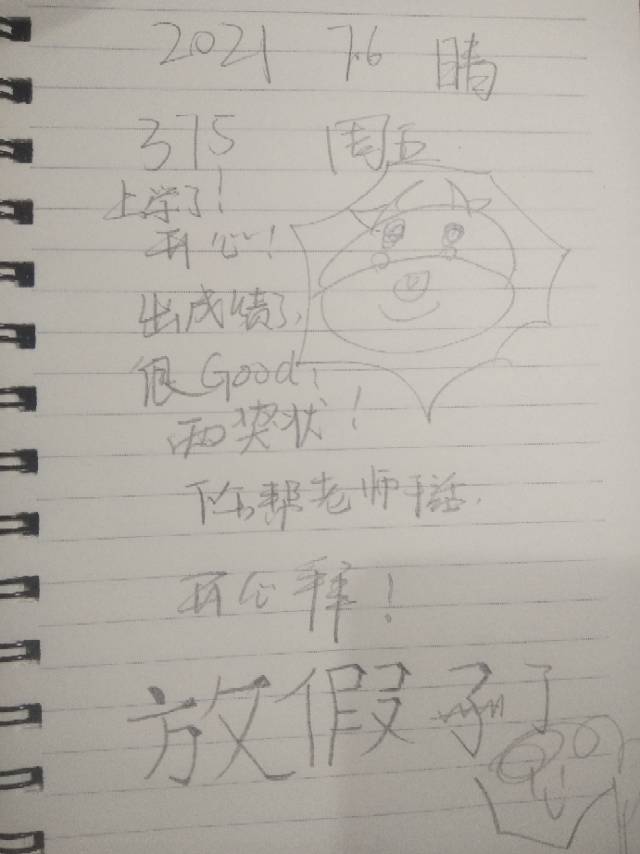 2021 7.6 晴
375 周五
上学了!
开心!
出成绩了,
很Good!
两奖状!
下午帮老师干活.
开心!
放假了